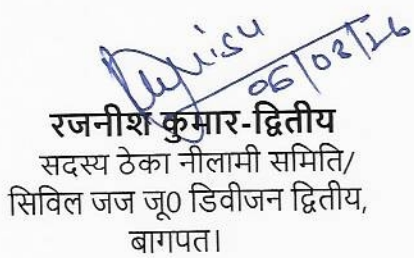 Rajnish
06/02/26
रजनीश कुमार-द्वितीय
सदस्य ठेका नीलामी समिति/
सिविल जज जू0 डिवीजन द्वितीय,
बागपत।